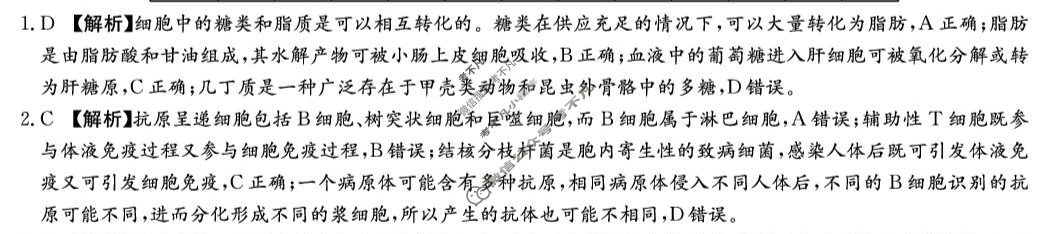 1. D 【解析】细胞中的糖类和脂质是可以相互转化的。糖类在供应充足的情况下,可以大量转化为脂肪,A 正确;脂肪
是由脂肪酸和甘油组成,其水解产物可被小肠上皮细胞吸收,B 正确;血液中的葡萄糖进入肝细胞可被氧化分解或转
为肝糖原,C 正确;几丁质是一种广泛存在于甲壳类动物和昆虫外骨骼中的多糖,D 错误。
2. C 【解析】抗原呈递细胞包括 B 细胞、树突状细胞和巨噬细胞,而 B 细胞属于淋巴细胞,A 错误;辅助性 T 细胞既参
与体液免疫过程又参与细胞免疫过程,B 错误;结核分枝杆菌是胞内寄生性的致病细菌,感染人体后既可引发体液免
疫又可引发细胞免疫,C 正确;一个病原体可能含有多种抗原,相同病原体侵入不同人体后,不同的 B 细胞识别的抗
原可能不同,进而分化形成不同的浆细胞,所以产生的抗体也可能不相同,D 错误。